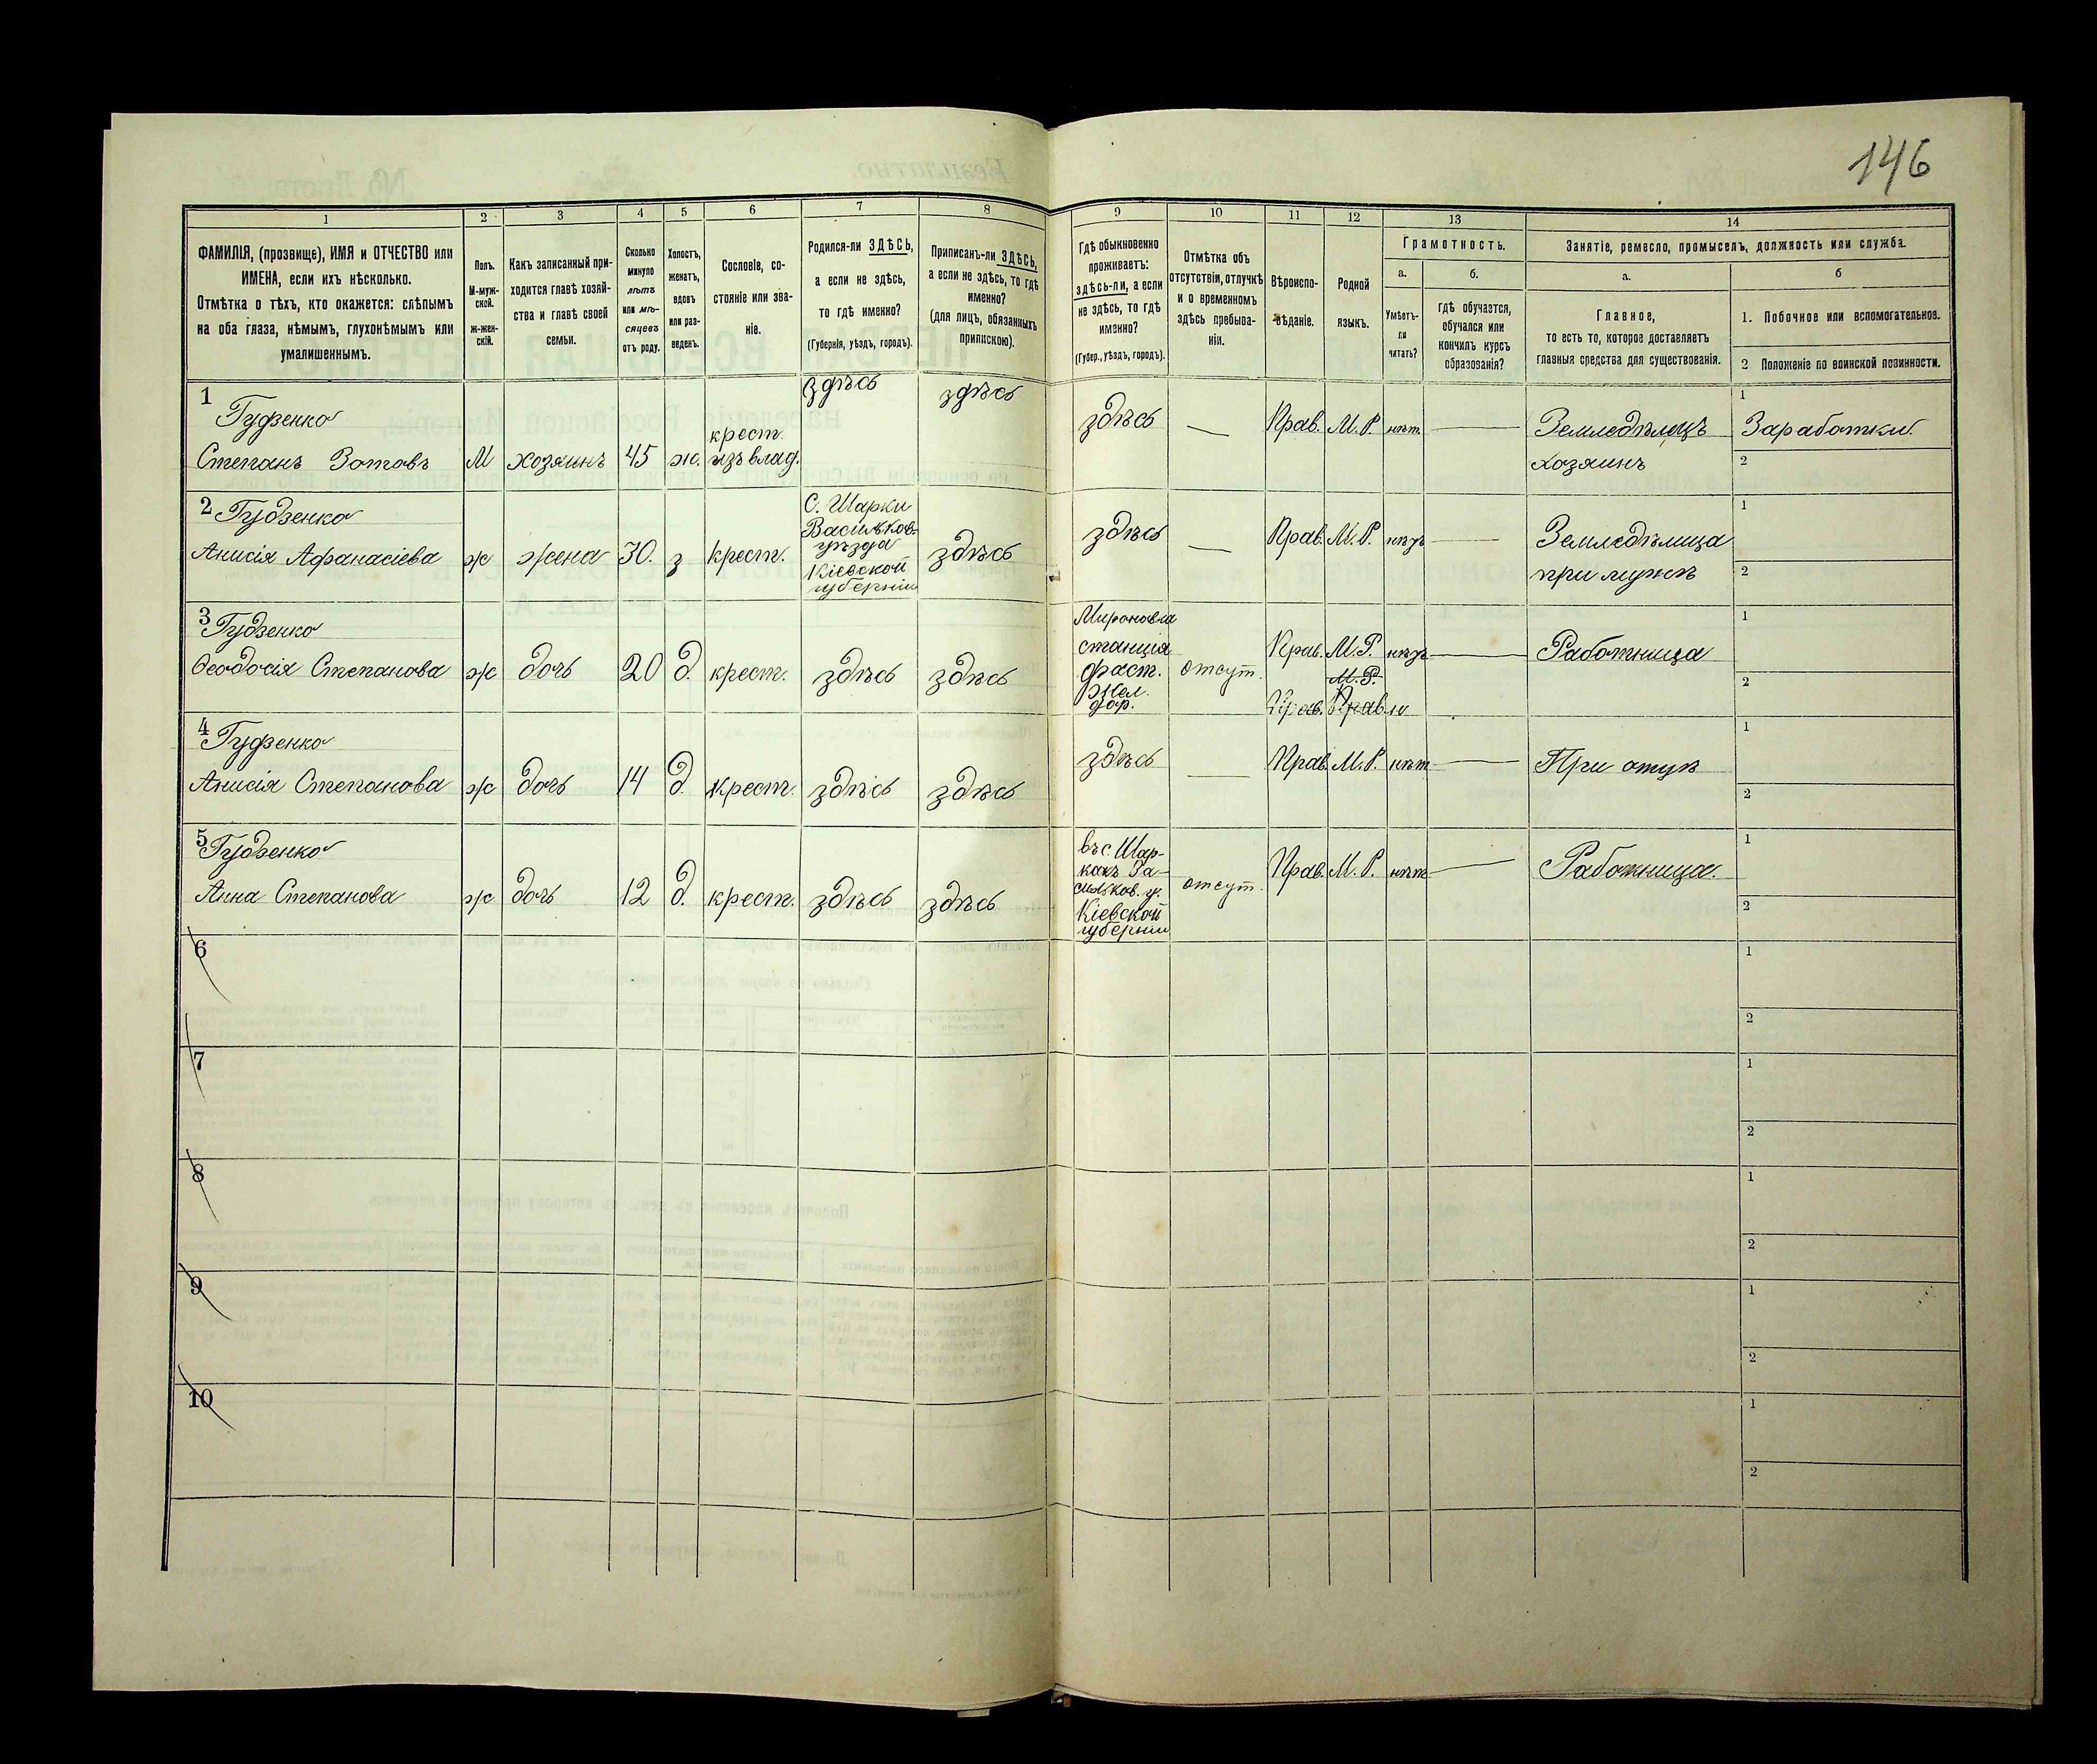 146
1
2
3
4
5
6
7
8
9
10
11
12
13
14
ФАМИЛІЯ, (прозвище), ИМЯ и ОТЧЕСТВО или
ИМЕНА, если ихъ нѣсколько.
Отмѣтка о тѣхъ, кто окажется: слѣпымъ
на оба глаза, нѣмымъ, глухонѣмымъ или
умалишеннымъ.
Полъ.
М-муж-
ской.
ж-жен-
скій.
Какъ записанный при-
ходится главѣ хозяй-
ства и главѣ своей
семьи.
Сколько
минуло
лѣтъ
или мѣ-
сяцевъ
отъ роду.
Холостъ,
женатъ,
вдовъ
или раз-
веденъ.
Сословіе, со-
стояніе или зва-
ніе.
Родился-ли ЗДѢСЬ,
а если не здѣсь,
то гдѣ именно?
(Губернія, уѣздъ, городъ).
Приписанъ-ли ЗДѢСЬ,
а если не здѣсь, то гдѣ
именно?
(для лицъ, обязанныхъ
припискою).
Гдѣ обыкновенно
проживаетъ:
здѣсь-ли, а если
не здѣсь, то гдѣ
именно?
(Губер., уѣздъ, городъ).
Отмѣтка объ
отсутствіи, отлучкѣ
и о временномъ
здѣсь пребыва-
ніи.
Вѣроиспо-
вѣданіе.
Родной
языкъ.
Грамотность.
а.
Умѣетъ-
ли
читать?
б.
Гдѣ обучается,
обучался или
кончилъ курсъ
образованія?
Занятіе, ремесло, промыселъ, должность или служба.
а.
Главное,
то есть то, которое доставляетъ
главныя средства для существованія.
б
1. Побочное или вспомогательное.
2 Положеніе по воинской повинности.
1
Гудзенко
Степанъ Зотовъ
М
хозяинъ
45
ж.
крест.
изъ влад.
здѣсь
здѣсь
здѣсь
—
Прав.
М. Р.
нѣт
—
Земледѣлецъ
хозяинъ
1
Заработки.
2
2 Гудзенко
Анисія Афанасіева
ж
жена
30.
з
крест.
С. Шарки
Васильков.
уѣзда
Кіевской
губерніи
здѣсь
здѣсь
—
Прав.
М. Р.
нѣтъ
—
Земледѣлица
при мужѣ
1
2
3 Гудзенко
Ѳеодосія Степанова
ж
дочь
20
д.
крест.
здѣсь
здѣсь
Мироновка
станція
фаст.
Жел.
дор.
отсут.
Прав.
М. Р.
нѣтъ
—
Работница
М. Р.
Прав.
1
2
4 Гудзенко
Анисія Степанова
ж
дочь
14
д.
крест.
здѣсь
здѣсь
здѣсь
—
Прав.
М. Р.
нѣт
—
При отцѣ
1
2
5 Гудзенко
Анна Степанова
ж
дочь
12
д.
крест.
здѣсь
здѣсь
въ с. Шар-
кахъ Ва-
сильков. у.
Кіевской
губерніи
отсут.
Прав.
М. Р.
нѣт
—
Работница.
1
2
6
1
2
7
1
2
8
1
2
9
1
2
10
1
2